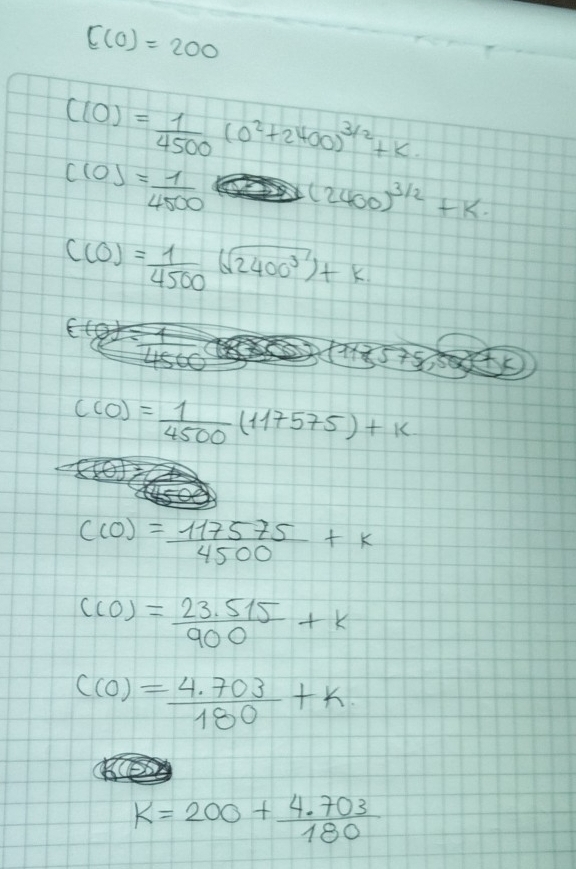 C(0) = 200
C(0) = 1/4500 (0²+2400)^3/2 + K.
C(0) = 1/4500 (2400)^3/2 + K.
C(0) = 1/4500 (√2400³) + K.
C(0) = 1/4500 (117575) + K
C(0) = 117575/4500 + K
C(0) = 23.515/900 + K
C(0) = 4.703/180 + K.
K = 200 + 4.703/180